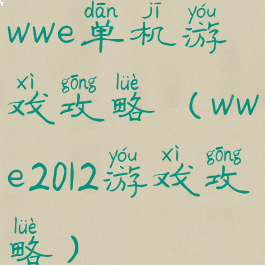 dān jī yóu
wwe单机游
xì gōng lüè
戏攻略（ww
yóu xì gōng
e2012游戏攻
lüè
略）